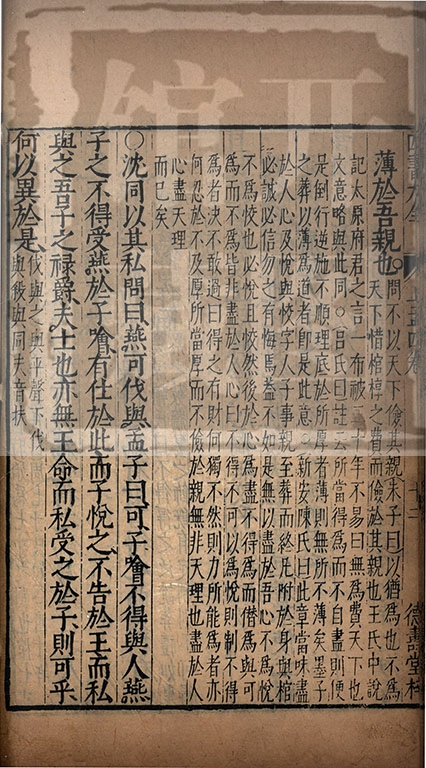 德壽堂梓
薄於吾親也問不以天下儉其親朱子曰以猶為也不為
天下惜棺椁之費而儉於其親也王氏中說
記太原府君之言一布被二十年不易曰無為費天下也
文意略與此同○呂氏曰註云所當得為而不自盡則便
是倒行逆施不順理底於所厚者薄則無所不薄矣墨子
之葬以薄為道者卽是此意○新安陳氏曰此章當味盡
於人心及悅與恔字人子事親至葬而終凡附於身與棺
必誠必信勿之有悔焉盖不如是無以盡於吾心不為悅
不為恔也必悅且恔然後於心為盡不得為而僣為與得
為而不為皆非盡於人心曰不得不可以為悅則制不得
為者決不敢過曰得之有財何獨不然則力所能為者亦
何忍於不及厚所當厚而不儉於親無非天理也盡於人
心盡天理
而已矣
○沈同以其私問曰燕可伐與孟子曰可子噲不得與人燕
子之不得受燕於子噲有仕於此而子悅之不告於王而私
與之吾子之祿爵夫士也亦無王命而私受之於子則可乎
何以異於是伐與之與平聲下伐
與殺與同夫音扶